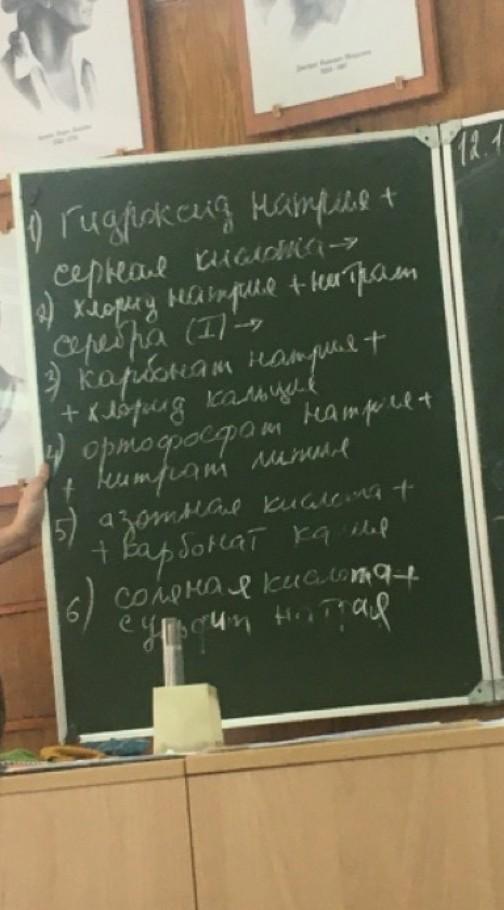 12.1
1) Гидроксид натрия +
серная кислота →
2) хлорид натрия + нитрат
серебра (I) →
3) карбонат натрия +
+ хлорид кальция
4) ортофосфат натрия +
+ нитрат лития
5) азотная кислота +
+ карбонат калия
6) соляная кислота +
сульфит натрия